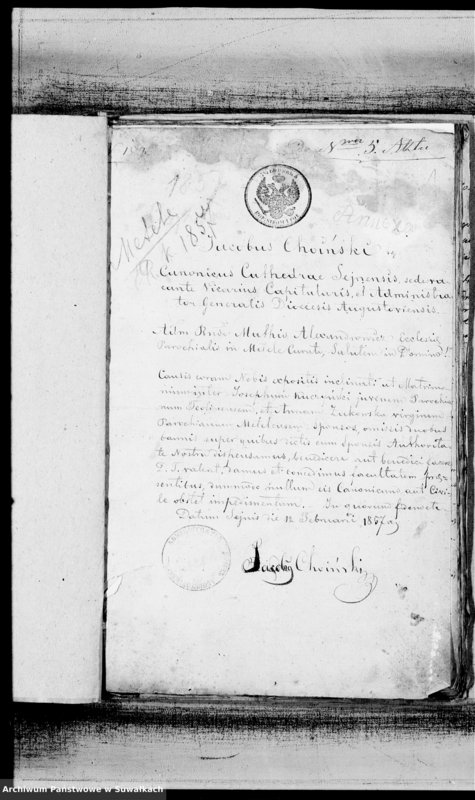 Nro 5. Aktu
Mesele
1857
Jacobus Choiński
Canonicus Cathedrae Sejnensis, sede va
cante Vicarius Capitularis, et Administra
tor Generalis Dioecesis Augustoviensis.
Adm Rndo Mathio Alexandrowicz Ecclesiæ
Parochialis in Mesele Curato, Salutem in Domino!
Causis coram Nobis expositis inclinati ut Matrimo
nium inter Josephum juvenem Parochia
num et Annam Żukowska virginem
Parochianam sponsos, omissis duobus
bannis super quibus dictis cum sponsis Authorita
te Nostra dispensamus, benedicere aut benedici facere
P. T. valeat, damus et concedimus facultatem præ
sentibus, dummodo nullum eis Canonicum aut Civi
le obstet impedimentum. In quorum fidem etc
Datum Sejnis die 12 Februarii 1857
Choiński
Archiwum Państwowe w Suwałkach